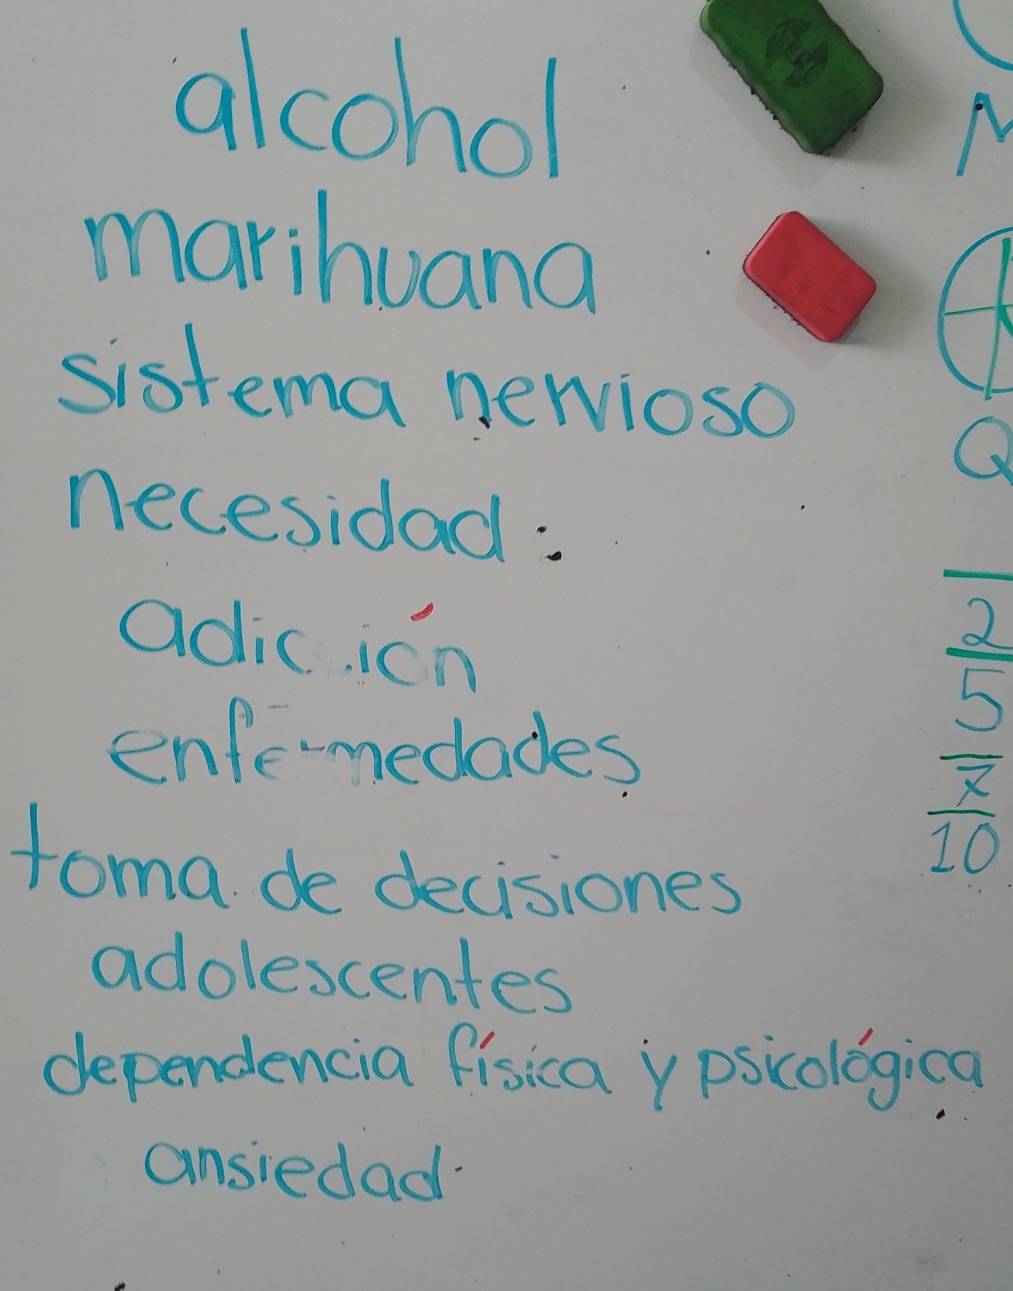 alcohol
marihuana
sistema nervioso
necesidad:
adicción
enfermedades
toma de decisiones
adolescentes
dependencia física y psicológica
ansiedad
M
Q
2
5
7
10